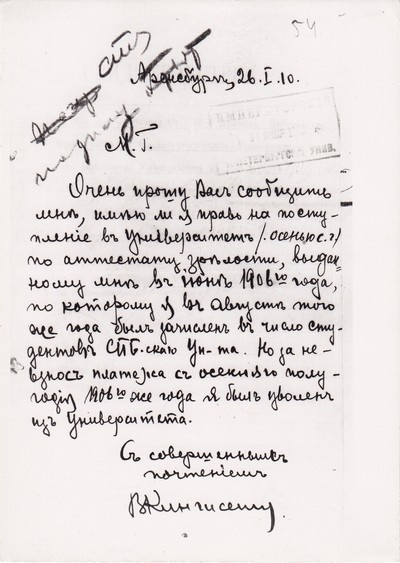 54
Аренсбургъ, 26.I.10.
М. Г.
Очень прошу Васъ сообщить
мнѣ, имѣю ли я право на посту-
пленіе въ Университетъ /осенью с. г/
по аттестату зрѣлости, выдан-
ному мнѣ въ июнѣ 1906го года,
по которому я въ августѣ того
же года былъ зачислен въ число сту-
дентовъ СПБ.скаго Ун-та. Но за не-
взносъ платежа съ осенняго полу-
годія 1906го же года я былъ уволен
изъ Университета.
Съ совершеннымъ
почтеніемъ
ВКингисеппъ.